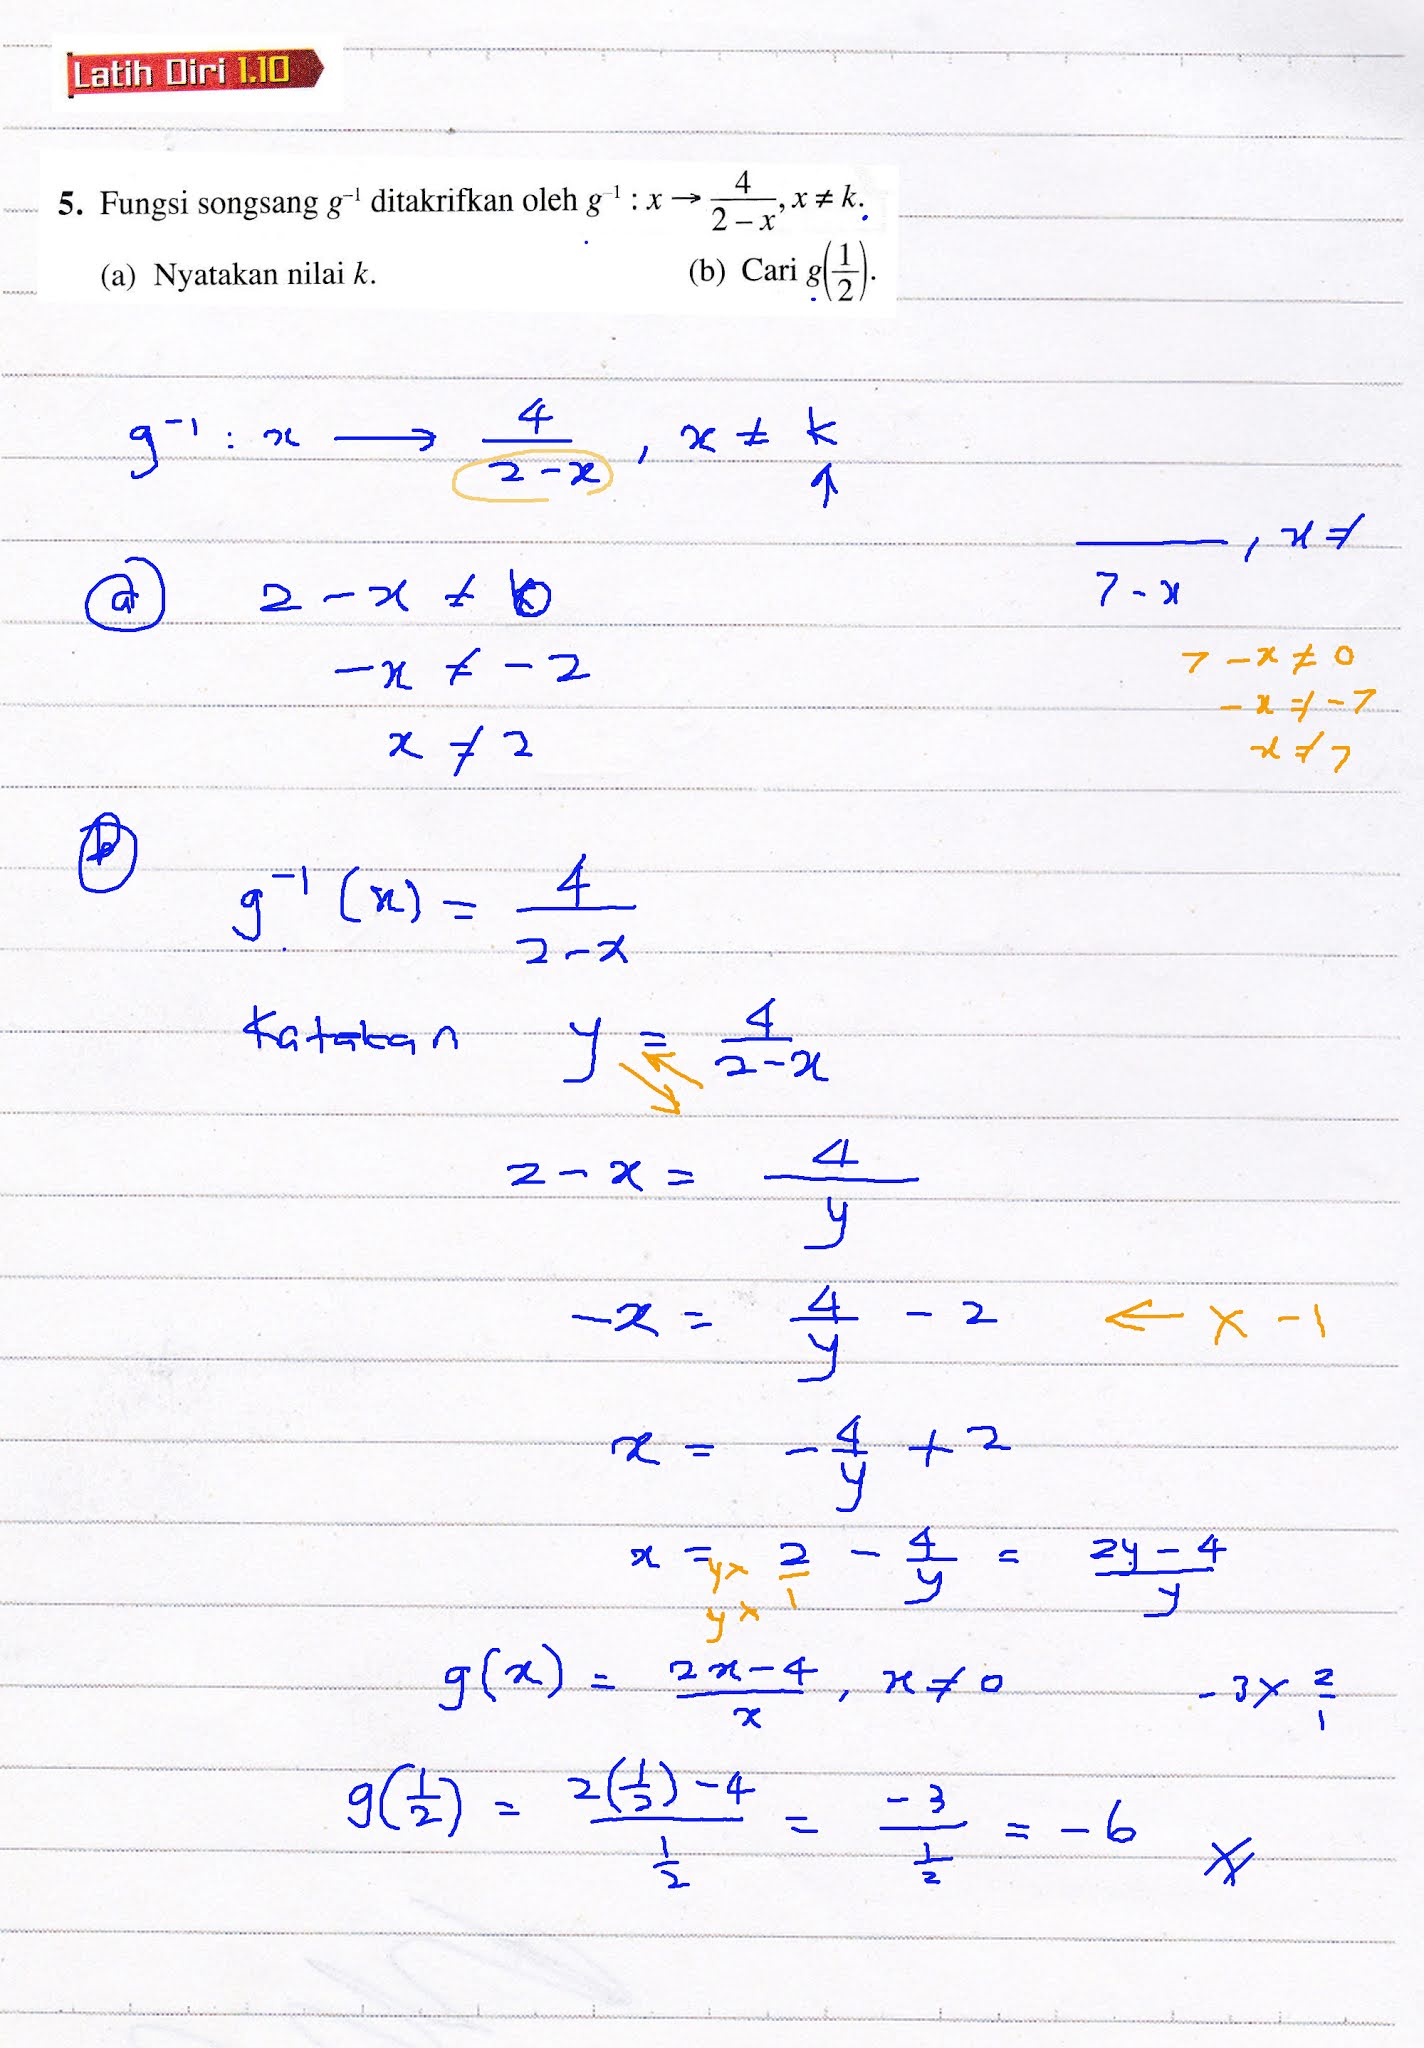 Latih Diri 1.10
5. Fungsi songsang g⁻¹ ditakrifkan oleh g⁻¹ : x → 4/(2 – x), x ≠ k.
(a) Nyatakan nilai k. (b) Cari g(1/2).
g⁻¹ : x → 4/(2 – x), x ≠ k
↑
―, x ≠
7 - x
(a) 2 – x ≠ 0
7 – x ≠ 0
–x ≠ –2
–x ≠ –7
x ≠ 2
x ≠ 7
(b)
g⁻¹(x) = 4/(2 – x)
Katakan y = 4/(2 – x)
2 – x = 4/y
–x = 4/y – 2 ← × –1
x = –4/y + 2
x = y×/y× 2/1 – 4/y = (2y – 4)/y
g(x) = (2x – 4)/x, x ≠ 0 –3 × 2/1
g(1/2) = (2(1/2) – 4)/(1/2) = –3/(1/2) = –6